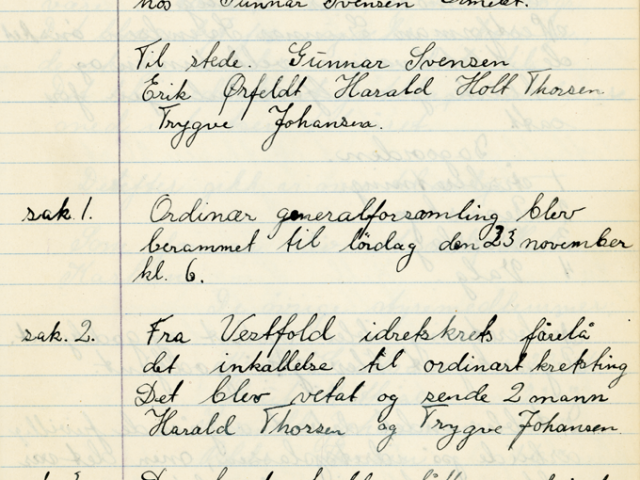 hos Gunnar Svensen
Til stede. Gunnar Svensen
Erik Ørfeldt Harald Holt Thorsen
Trygve Johansen.
sak 1. Ordinær generalforsamling blev
berammet til lördag den 23 november
kl. 6.
sak. 2. Fra Vestfold idretskrets förelå
det inkallelse til ordinært kretsting
Det blev vetat og sende 2 mann
Harald Thorsen og Trygve Johansen.